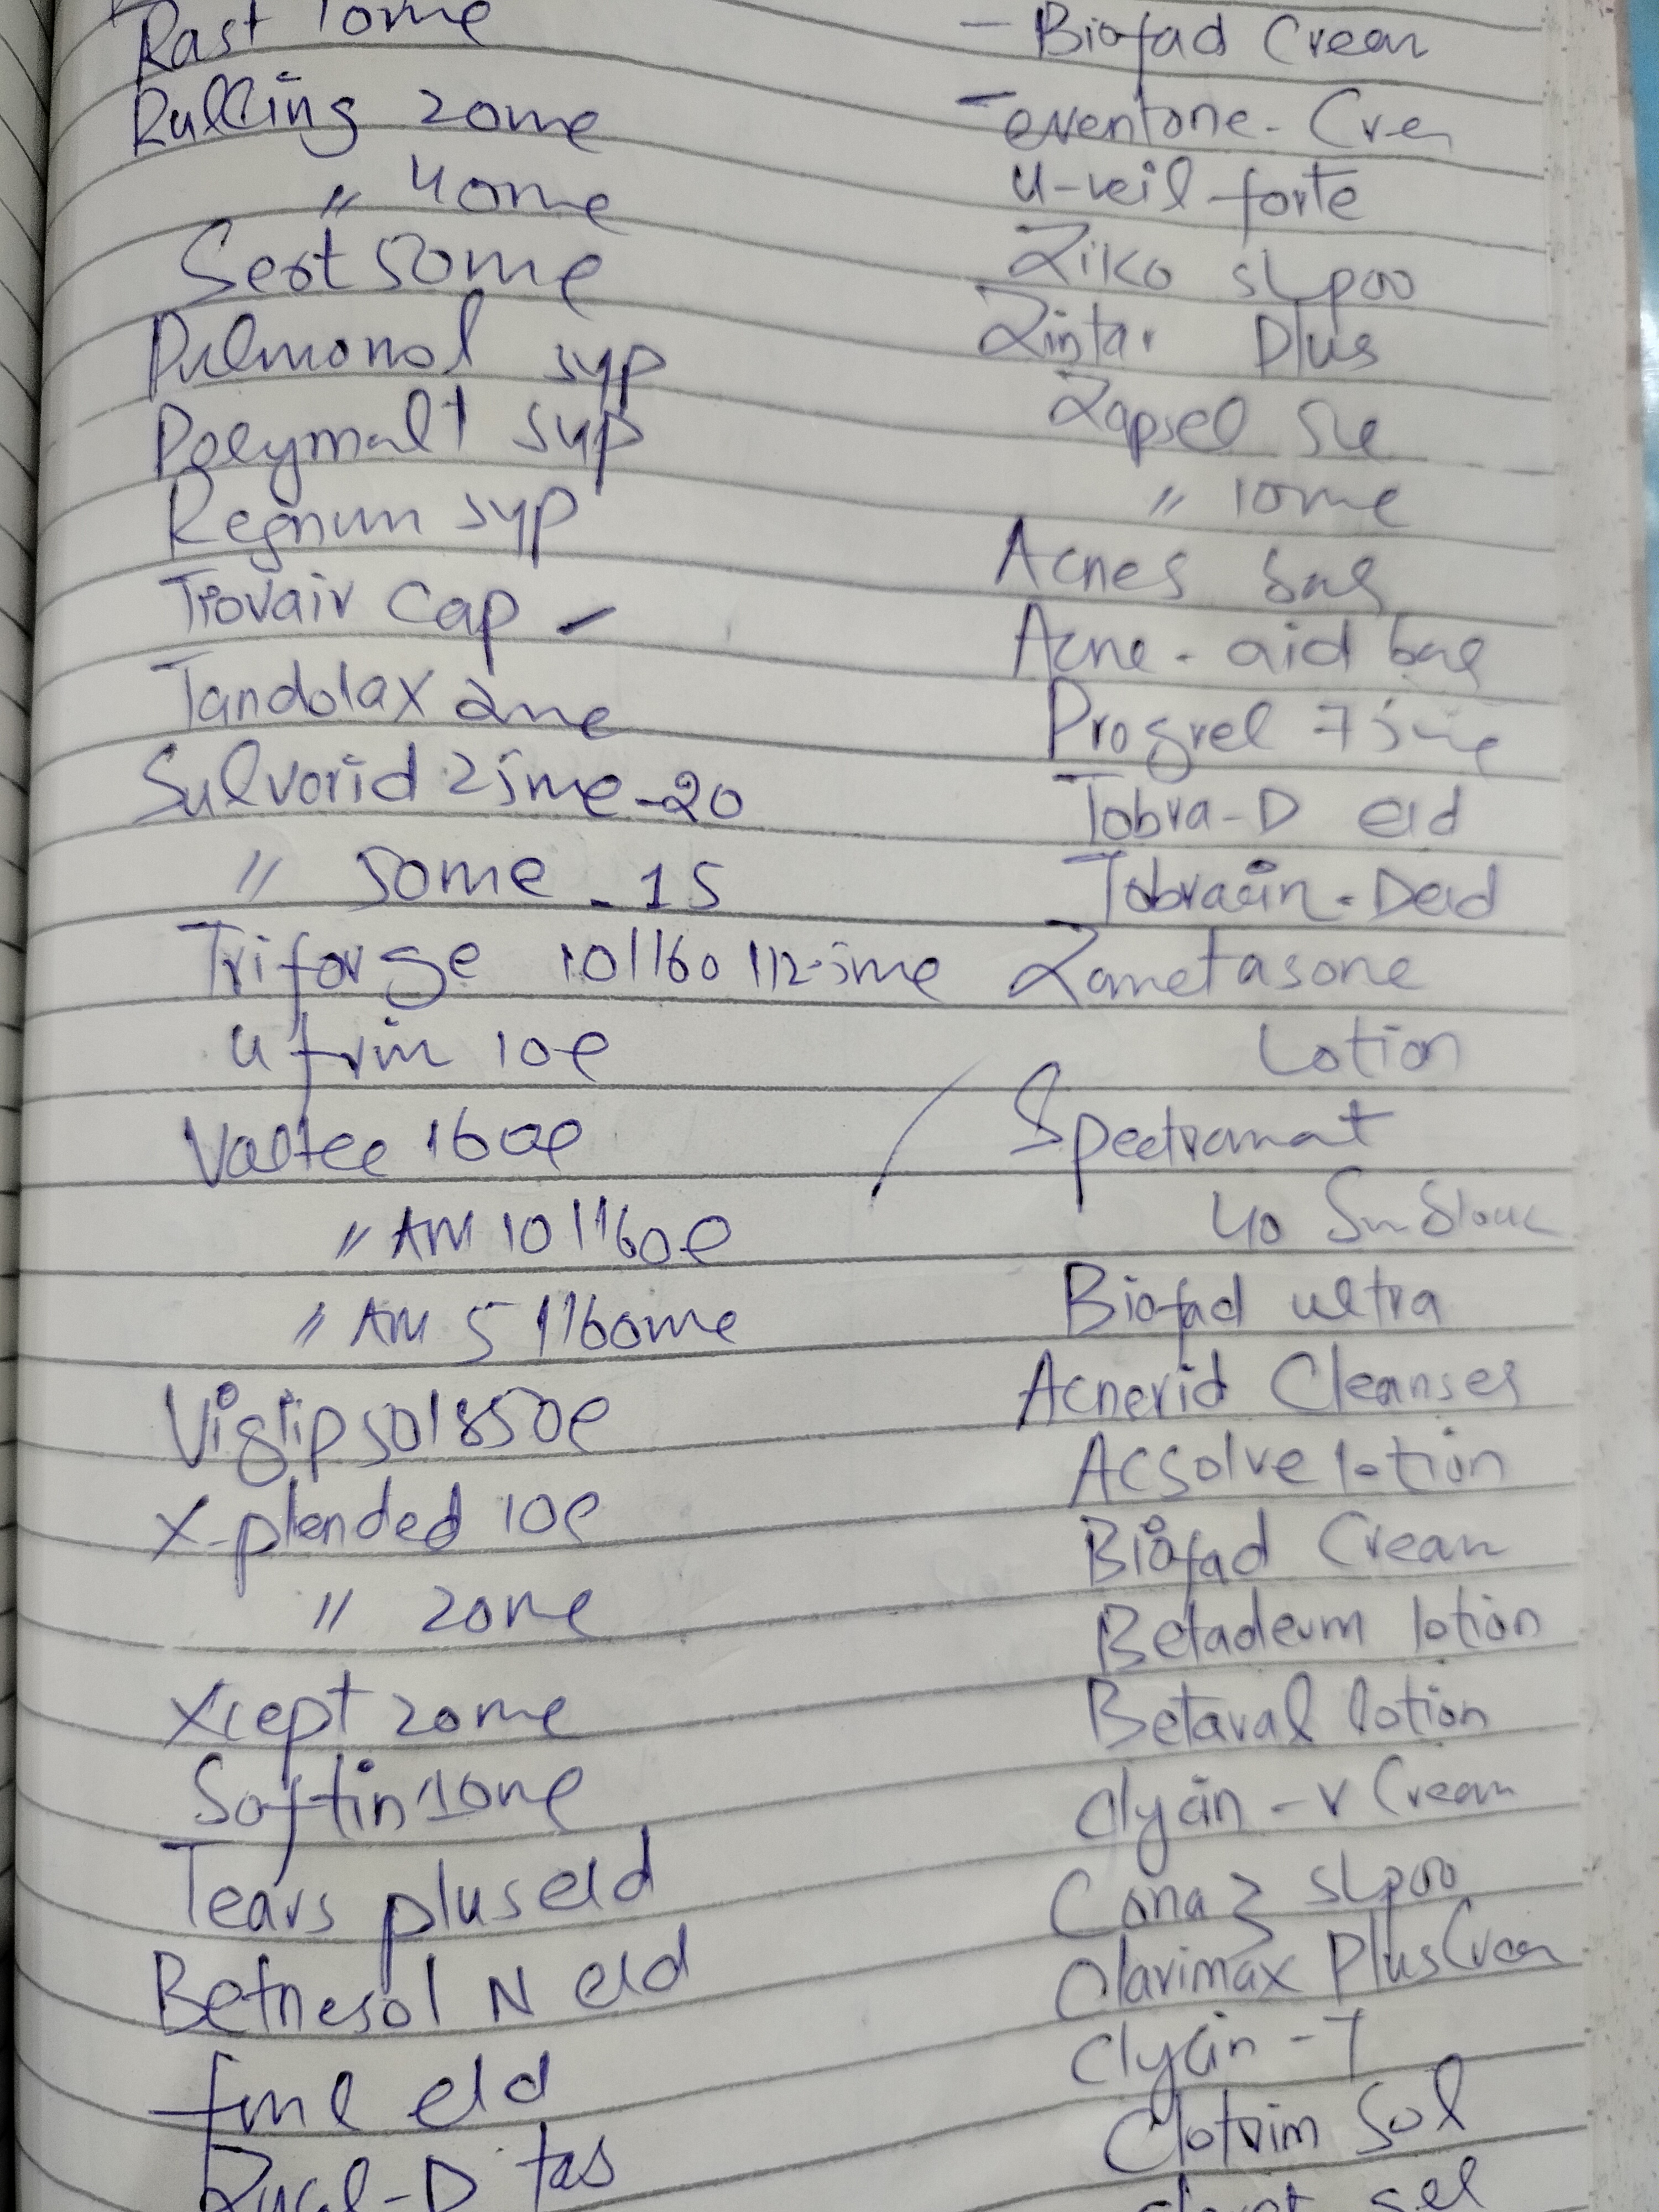 Rast 10mg
Rulling 20mg
" 40mg
Sert 50mg
Pulmonol syp
Polymalt syp
Regnum syp
Tiovair Cap -
Tandolax 2mg
Sulvorid 25mg - 20
" 50mg - 15
Triforge 10/160/12.5mg
Ufrim 10g
Valtec 160g
" AM 10/160g
" AM 5/160mg
Viglip 50/850g
X-plended 10g
" 20mg
Xcept 20mg
Softin 10mg
Tears plus e/d
Betnesol N e/d
fml e/d
D tab
- Biofad Cream
- eventone - Cre
U-veil forte
Ziko shpoo
Zintar Plus
Zapsel 5g
" 10mg
Acnes bar
Acne-aid bar
Progrel 75mg
Tobra-D e/d
Tobracin-D e/d
Zametasone
Lotion
Spectramat
40 Sunblock
Biofad ultra
Acnerid Cleanser
Acsolve lotion
Biofad Cream
Betaderm lotion
Betaval lotion
Clycin-V Cream
Conaz shpoo
Clarimax Plus Cream
Clycin-T
Clotrim Sol
gel